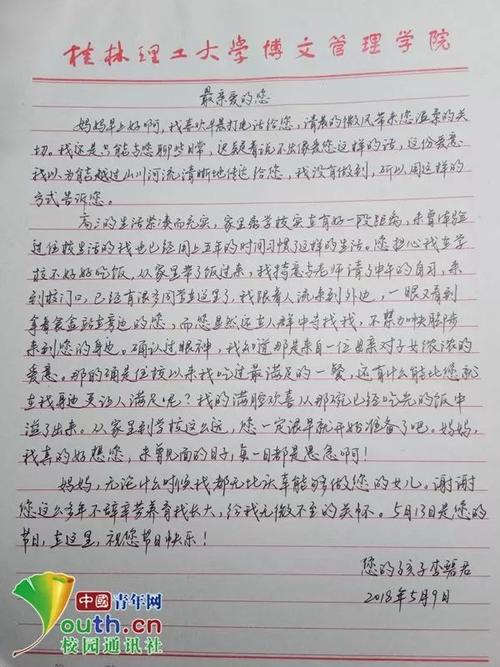 桂林理工大学博文管理学院
最亲爱的您
妈妈早上好啊,我喜欢早晨打电话给您,清晨的微风带来您温柔的关
切。我还是只能与您聊些日常,迟疑着说不出像爱您这样的话,这份爱意
我以为能越过山川河流清晰地传达给您,我没有做到,所以用这样的
方式告诉您。
高三的生活紧凑而充实,家里离学校实在有好一段距离,未曾体验
过住校生活的我也已经用上五年的时间习惯了这样的生活。您担心我在学
校不好好吃饭,从家里带了饭过来,我特意与老师请了中午的自习,来
到校门口,已经有很多同学在这里了,我跟着人流来到外边,一眼又看到
拿着食盒站在旁边的您,而您显然还在人群中寻找我,不禁加快脚步
来到您的身边。确认过眼神,我知道那是来自一位母亲对子女浓浓的
爱意。那的确是住校以来我吃过最满足的一餐,还有什么能比您就
在我身边更让人满足呢?我的满脸欢喜从那碗已经吃完的饭中
溢了出来。从家里到学校这么远,您一定很早就开始准备了吧。妈妈,
我真的好想您,未曾见面的日子,每一日都是思念啊!
妈妈,无论什么时候我都无比庆幸能够做您的女儿。谢谢
您这么多年不辞辛劳养育我长大,给我无微不至的关怀。5月13日是您的
节日,在这里,祝您节日快乐!
您的孩子李碧君
2018年5月9日
中國青年网
youth.cn
校园通讯社